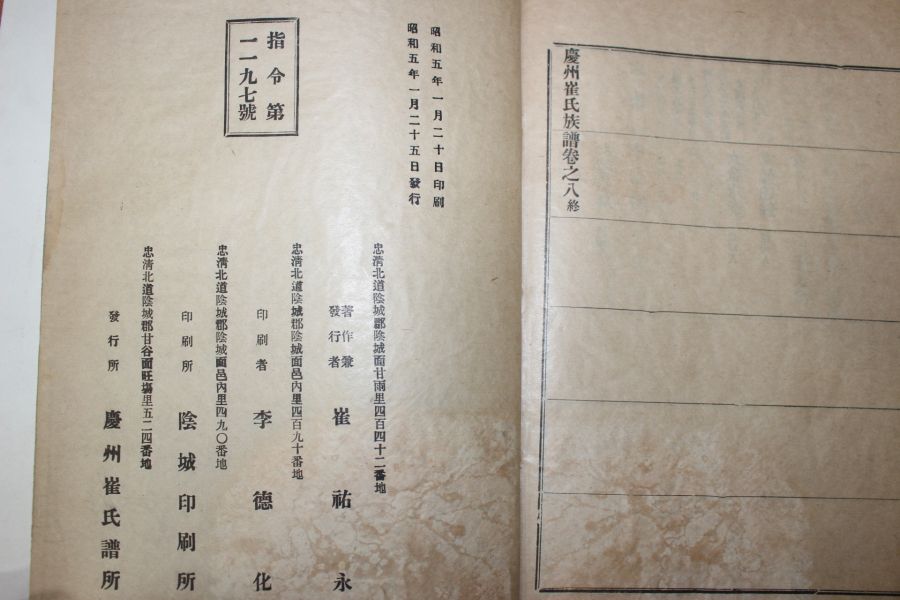 慶州崔氏族譜卷之八終
昭和五年一月二十日印刷
昭和五年一月二十五日發行
指令第
一一九七號
忠淸北道陰城郡陰城面甘雨里四百四十二番地
著作兼
發行者 崔祐永
忠淸北道陰城郡陰城面邑內里四百九十番地
印刷者 李德化
忠淸北道陰城郡陰城面邑內里四九〇番地
印刷所 陰城印刷所
忠淸北道陰城郡甘谷面旺塲里五二四番地
發行所 慶州崔氏譜所